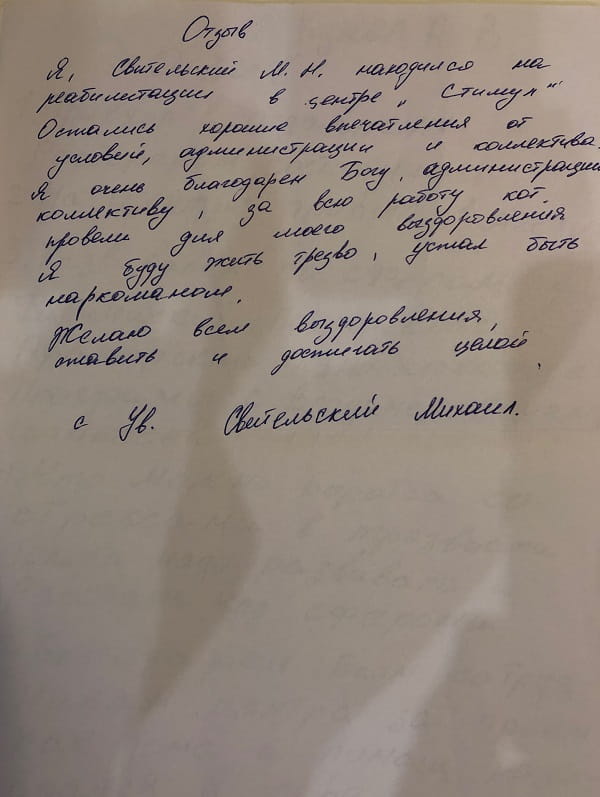 Отзыв
Я, Свительский М. Н. находился на
реабилитации в центре „Стимул"
Остались хорошие впечатления от
условий, администрации и коллектива.
Я очень благодарен Богу, администрации
коллективу, за всю работу кот.
провели для моего выздоровления
Я буду жить трезво, устал быть
наркоманом.
Желаю всем выздоровления,
ставить и достигать целей.
с Ув. Свительский Михаил.